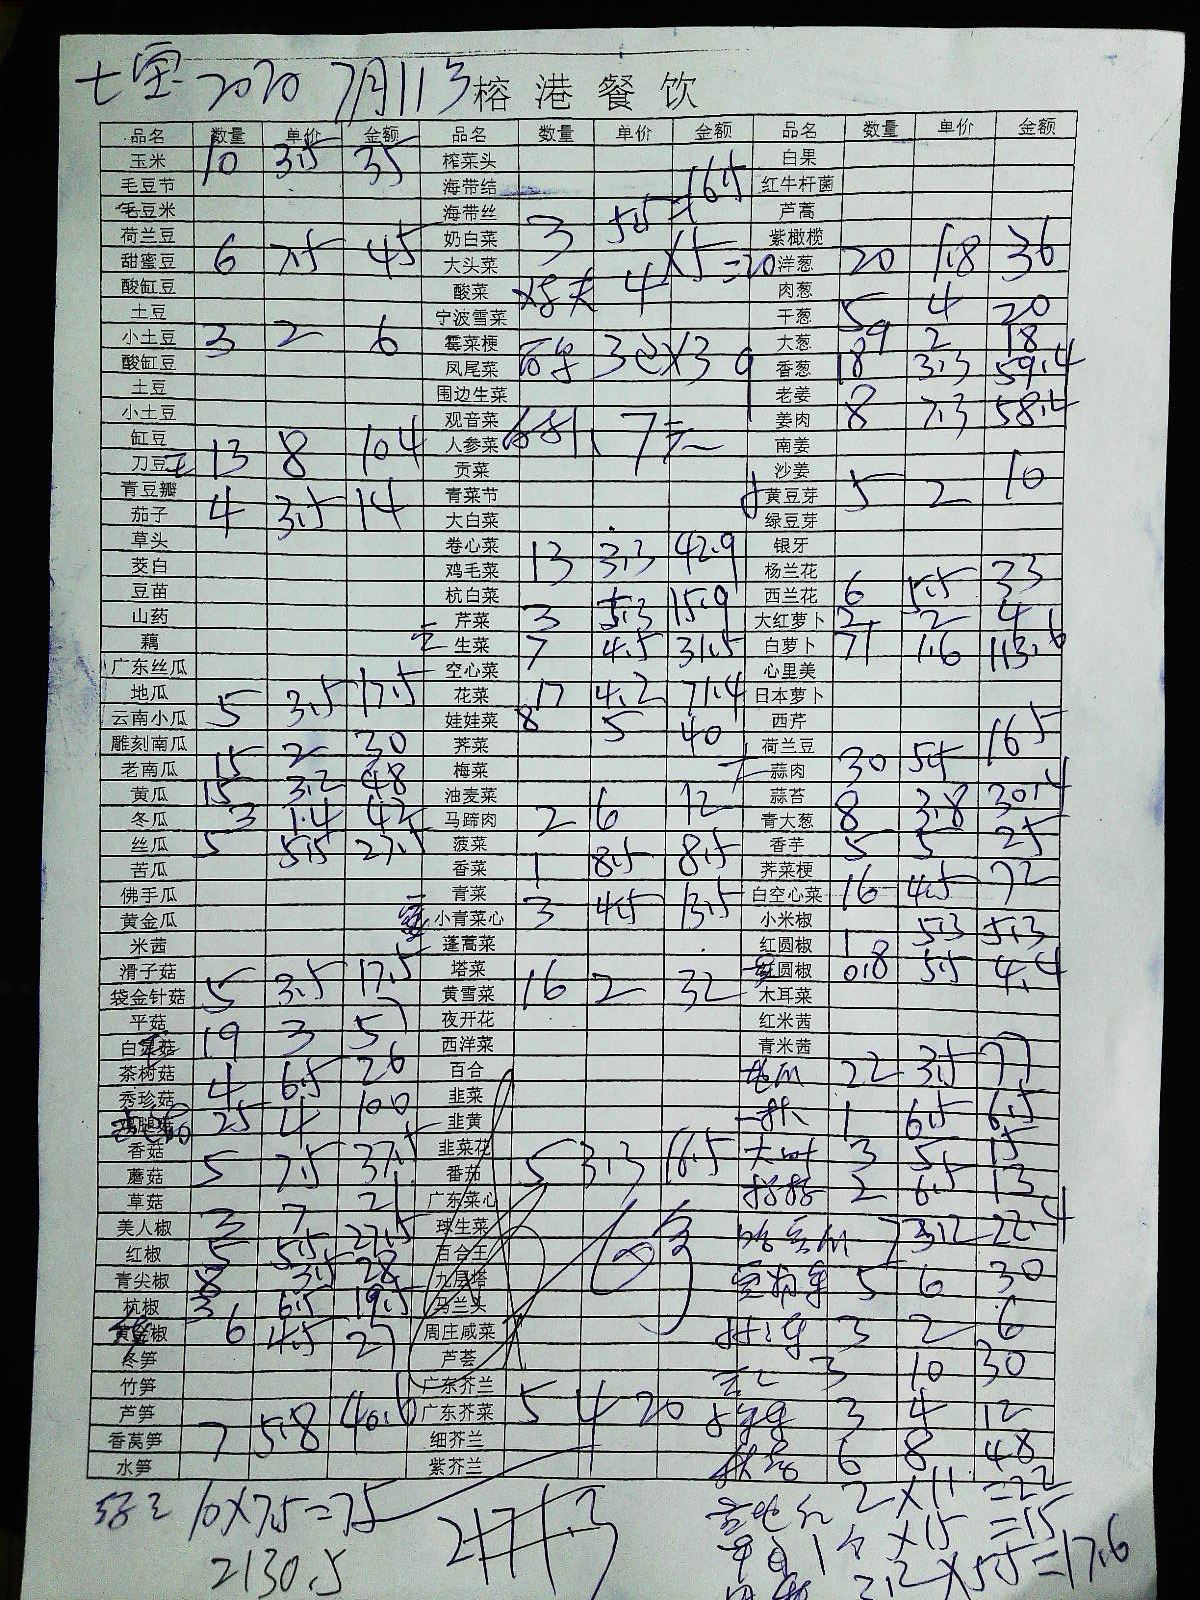 七宝 2020 7月11号 榕港餐饮
品名 数量 单价 金额 品名 数量 单价 金额 品名 数量 单价 金额
玉米 10 3.5 35 榨菜头 白果
毛豆节 海带结 16.5 红牛杆菌
毛豆米 海带丝 芦蒿
荷兰豆 奶白菜 3 5.5 紫橄榄
甜蜜豆 6 7.5 45 大头菜 洋葱 20 1.8 36
酸缸豆 酸菜 4 X5 =20 肉葱
土豆 宁波雪菜 干葱 5 4 20
小土豆 3 2 6 霉菜梗 大葱 9 2 18
酸缸豆 凤尾菜 3 X3 9 香葱 18 3.3 59.4
土豆 围边生菜 老姜
小土豆 观音菜 姜肉 8 7.3 58.4
缸豆 人参菜 7 南姜
刀豆 13 8 104 贡菜 沙姜
青豆瓣 青菜节 黄豆芽 5 2 10
茄子 4 3.5 14 大白菜 绿豆芽
草头 卷心菜 银牙
茭白 鸡毛菜 13 3.3 42.9 杨兰花
豆苗 杭白菜 西兰花 6 5.5 33
山药 芹菜 3 5.3 15.9 大红萝卜 2 2 4
藕 生菜 7 4.5 31.5 白萝卜 71 1.6 113.6
广东丝瓜 空心菜 心里美
地瓜 花菜 17 4.2 71.4 日本萝卜
云南小瓜 5 3.5 17.5 娃娃菜 8 5 40 西芹
雕刻南瓜 荠菜 荷兰豆
老南瓜 15 2 30 梅菜 蒜肉 30 5.5 165
黄瓜 15 3.2 48 油麦菜 蒜苔 8 3.8 30.4
冬瓜 3 1.4 42 马蹄肉 2 6 12 青大葱
丝瓜 5 5.5 27.5 菠菜 香芋 5 5 25
苦瓜 香菜 1 8.5 8.5 荠菜梗
佛手瓜 青菜 白空心菜 16 4.5 72
黄金瓜 小青菜心 3 4.5 13.5 小米椒
米茜 蓬蒿菜 红圆椒 1 5.3 5.3
滑子菇 塔菜 圆椒 0.8 5.5 4.4
袋金针菇 5 3.5 17.5 黄雪菜 16 2 32 木耳菜
平菇 夜开花 红米茜
白菇 19 3 57 西洋菜 青米茜
茶树菇 4 6.5 26 百合 22 3.5 77
秀珍菇 韭菜
25 4 100 韭黄 1 6.5 6.5
香菇 韭菜花 3 5 15
蘑菇 5 7.5 37.5 番茄 5 3.3 16.5
草菇 广东菜心 2 6.5 13
美人椒 3 7 21 球生菜 7 3.2 22.4
红椒 5 5.5 27.5 百合王
青尖椒 8 3.5 28 九层塔 5 6 30
杭椒 3 6.5 19.5 马兰头
椒 6 4.5 27 周庄咸菜 3 2 6
冬笋 芦荟 3 10 30
竹笋 广东芥兰
芦笋 广东芥菜 5 4 20 3 4 12
香莴笋 7 5.8 40.6 细芥兰
水笋 紫芥兰 6 8 48
10X7.5=75 2X11=22
2171.3 1个X15=15
2130.5 3.2X5.5=17.6